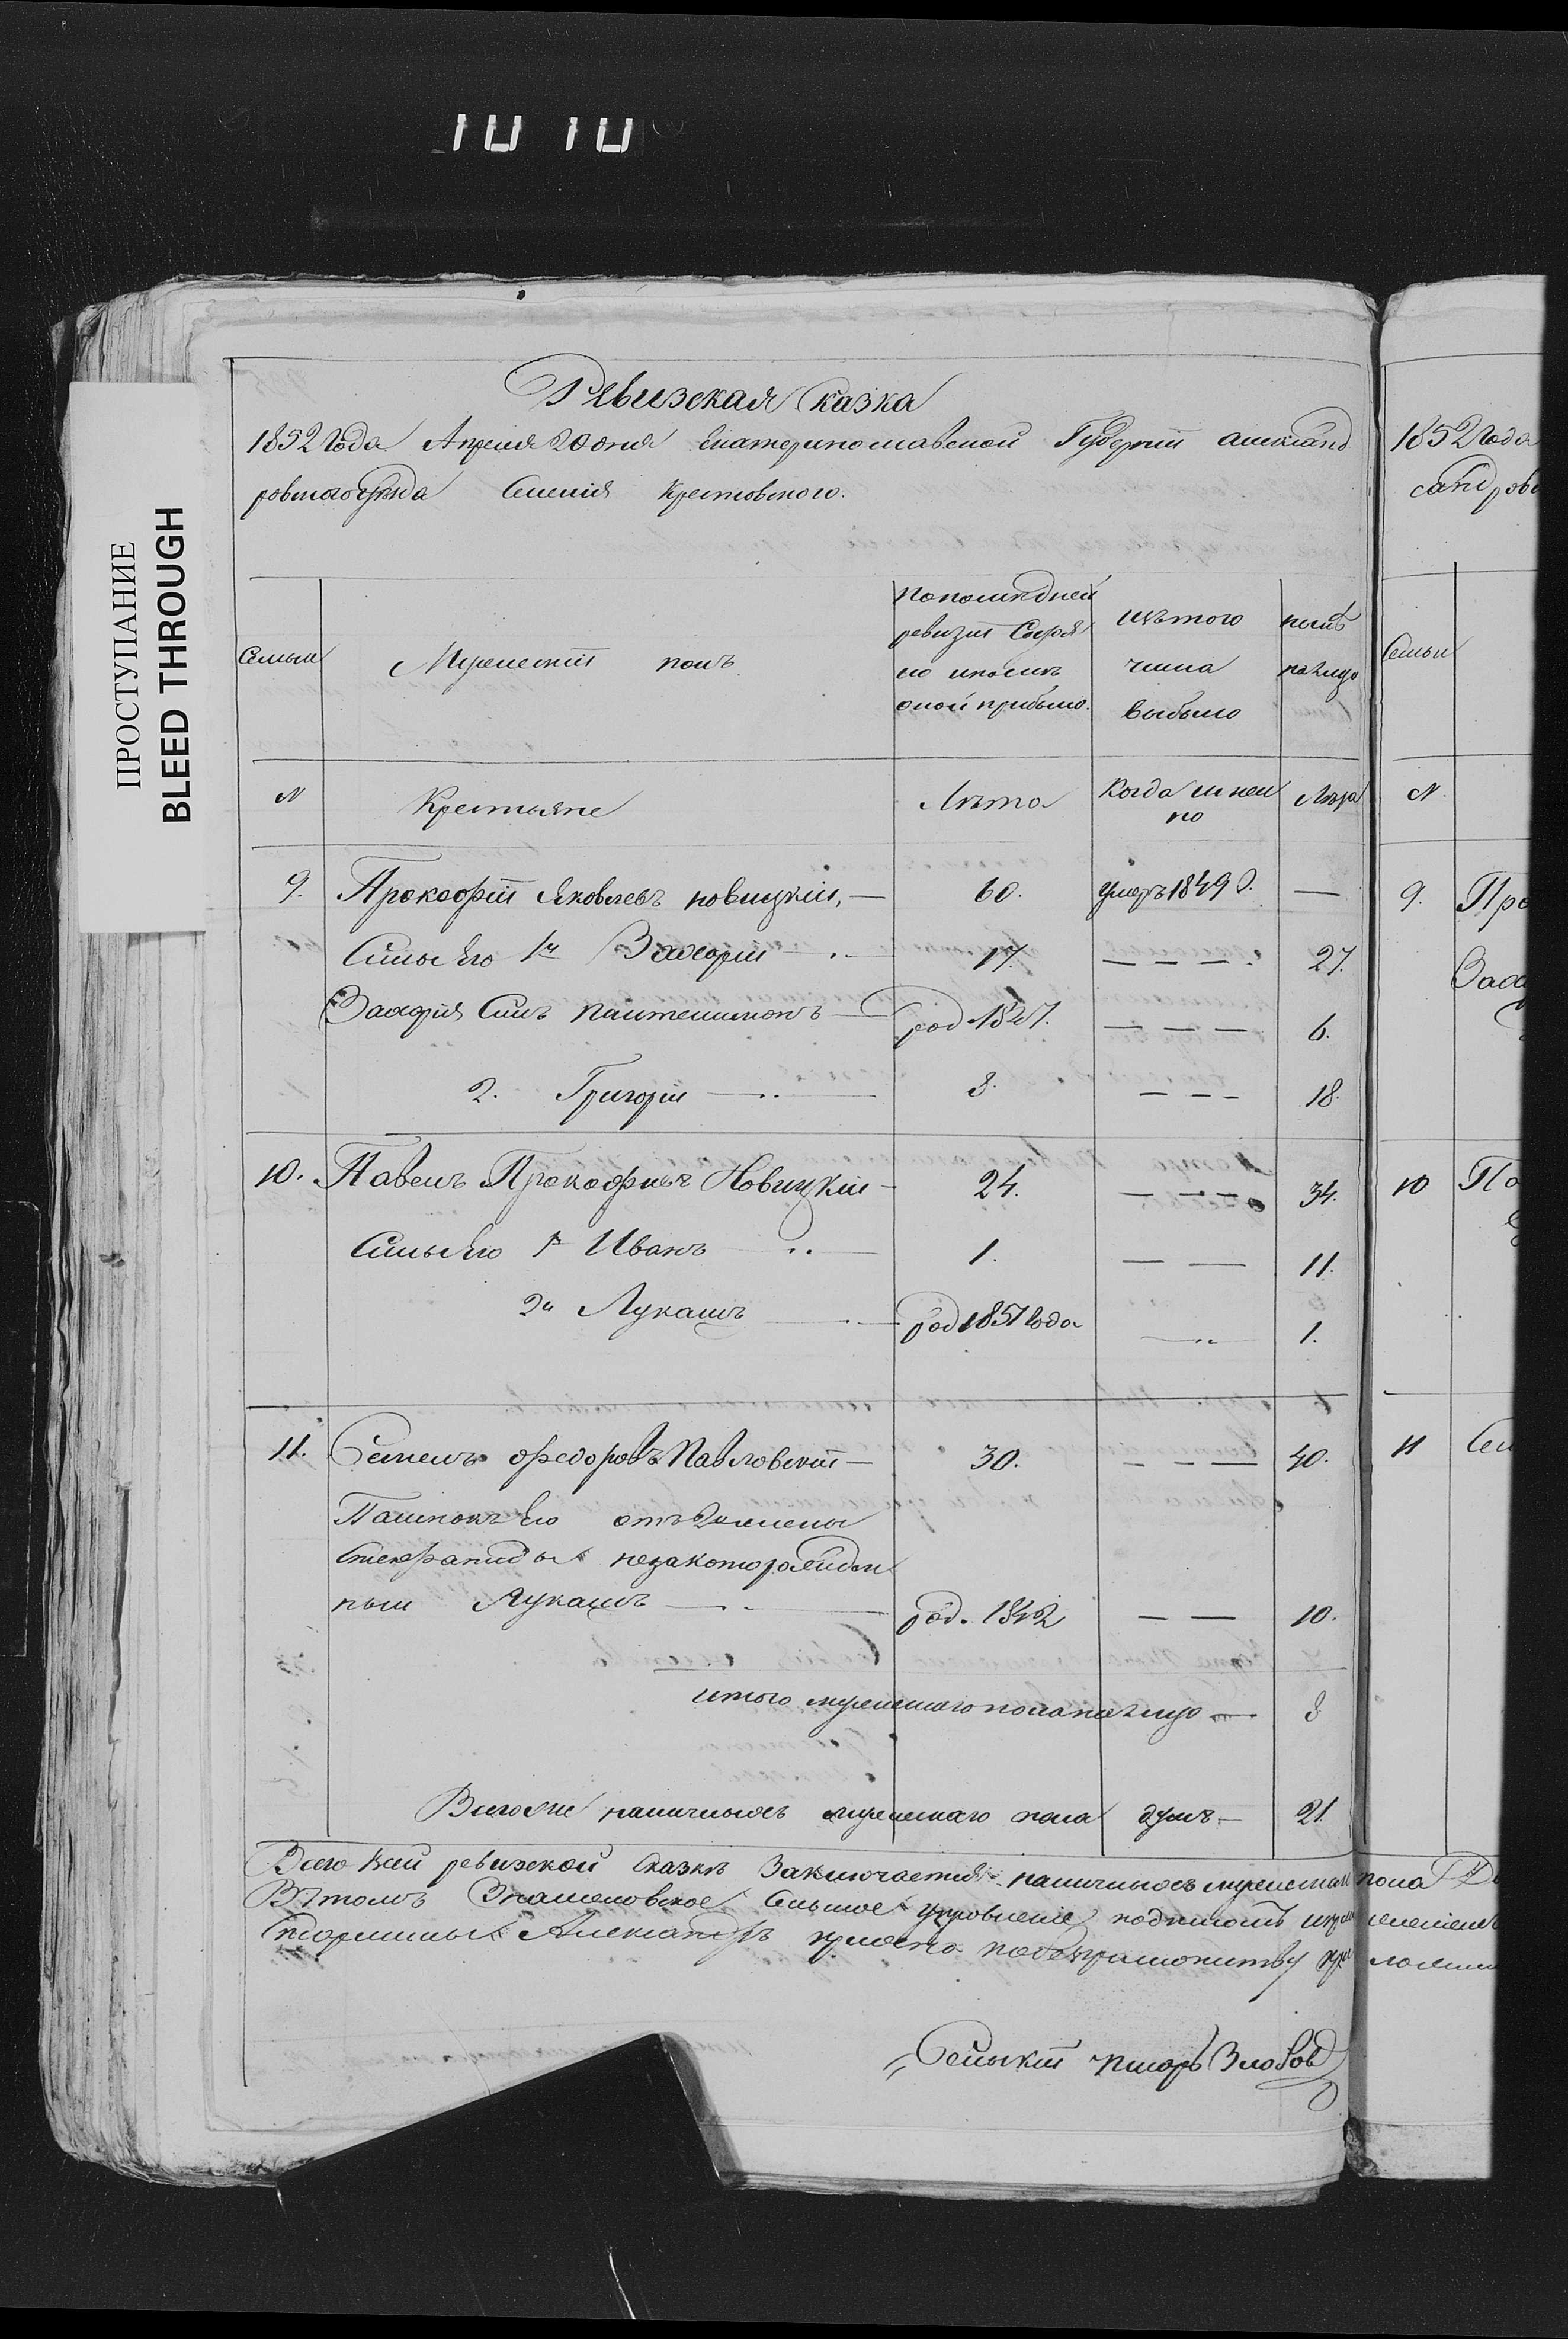 ПРОСТУПАНИЕ
BLEED THROUGH
Ревизская Сказка
1852 Года Апреля 20 дня Екатеринославской Губернии александ
ровского уезда Селения Крестовского.
Семьи
Мужеский полъ
по последней ревизіи Состоя
ло и после оной прибыло.
изъ того числа выбыло
ныне на лицо
N
Крестьяне
Лета
Когда именно
Лета
9. Прокофій Яковлевъ новицкій, — 60. умеръ 1849 — 
Сыны Его 1й Захарій — 17. — — — 27.
Захарія Сынъ пантелимонъ — род 1847. — — — 6.
2. Григорій — 8. — — — 18.
10. Павелъ Прокофьевъ Новицкій — 24. — — — 34.
Сыны Его 1й Иванъ — 1. — — 11.
2й Лукашъ — род 1851 Года — 1.
11. Семенъ Федоровъ Павловскій — 30. — — — 40.
Пасынокъ Его отъ 2й жены
Стефаниды незаконорожден
ный Лукашъ — род. 1842 — — 10.
итого мужескаго пола на лицо — 8
Всего же наличныхъ мужескаго пола душъ — 21.
Всего в сей ревизской Сказке Заключается наличныхъ мужескаго пола
В томъ Знаменовское Сельское управление
Александръ
Сельскій писарь
1852 Года
сандров
Семьи
N.
9. Про
Заха
10 Па
11 Сем